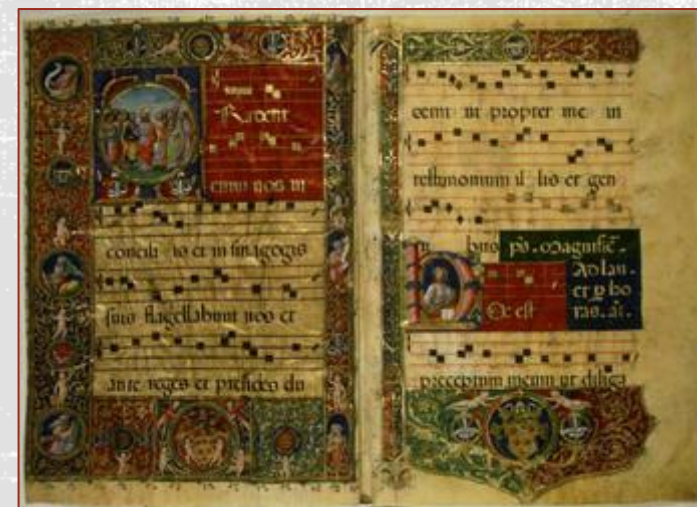 Radent
enim uos in
concili is et in sinagogis
suis flagellabunt uos et
ante reges et presides du
cemi ni propter me in
testimonium il lis et gen
ti bus ps. Magnific.
Ad lau.
et p ho
ras. an.
Hoc est
preceptum meum ut diliga